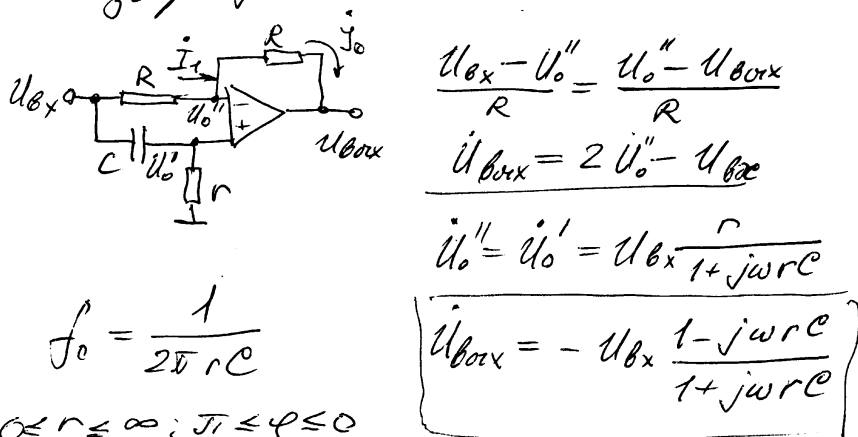 R
İ₁
R
j̇₀
Uвх
U₀''
−
+
C
U̇₀'
r
Uвых
(Uвх − U̇₀'')/R = (U̇₀'' − Uвых)/R
U̇вых = 2U̇₀'' − Uвх
U̇₀'' = U̇₀' = Uвх r/(1 + jωrC)
f₀ = 1/(2π rC)
U̇вых = − Uвх (1 − jωrC)/(1 + jωrC)
0 ≤ r ≤ ∞; π ≤ φ ≤ 0